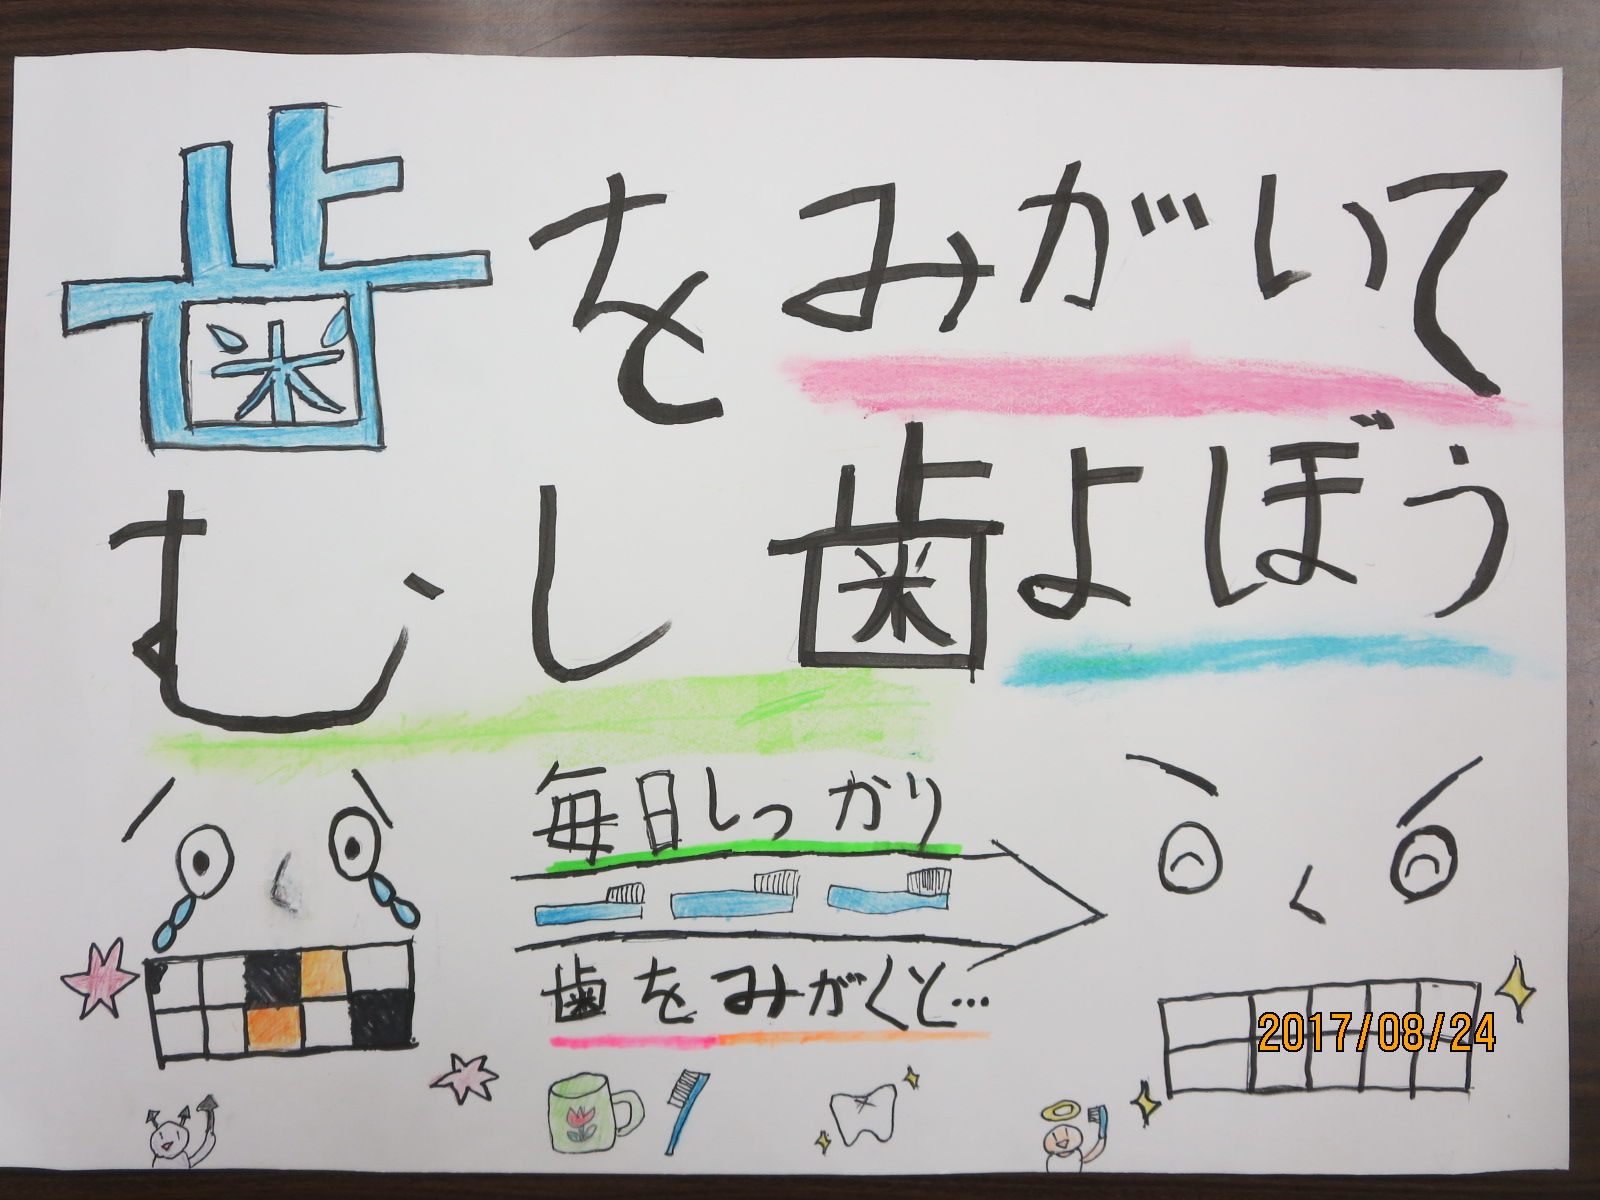 歯をみがいて
むし歯よぼう
毎日しっかり
歯をみがくと…
2017/08/24